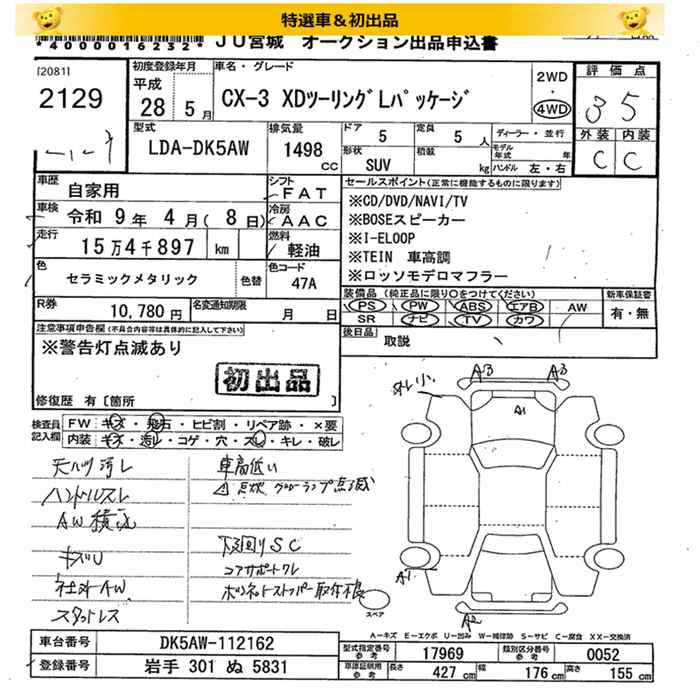 特選車&初出品
*4000016232* JU宮城 オークション出品申込書
[2081]
2129
初度登録年月
平成
28 5月
車名・グレード
CX-3 XDツーリングLパッケージ
2WD
・
4WD
評価点
3 5
外装 内装
C C
型式
LDA-DK5AW
排気量
1498
CC
ドア 5
形状 SUV
定員 5 人
積載 kg
ディーラー・並行
モデル年式 年
ハンドル 左・右
車歴 自家用
シフト FAT
車検 令和 9年 4月( 8日)
冷房 AAC
走行 15万4千897 km
燃料 軽油
色 セラミックメタリック 色替
色コード 47A
R券 10,780円
名変通知期限 月 日
セールスポイント(正常に機能するものに限ります)
※CD/DVD/NAVI/TV
※BOSEスピーカー
※I-ELOOP
※TEIN 車高調
※ロッソモデロマフラー
装備品(純正品に限り○をつけてください)
PS PW ABS エアB AW
SR ナビ TV カワ
新車保証書
有・無
後日品 取説
注意事項申告欄(不具合内容等は具体的に記入して下さい)
※警告灯点滅あり
初出品
修復歴 有[箇所 ]
検査員記入欄
FW キズ・飛石・ヒビ割・リペア跡・×要
内装 キズ・汚れ・コゲ・穴・スレ・キレ・破レ
天バリ汚レ
ハンドルスレ
AW積込
キズU
社外AW
スタッドレス
車高低い
⚠点灯 グローランプ点滅
下回りSC
コアサポートワレ
ボンネットストッパー取付不良
A3 A3
A1
A1
A2
スペア
A-キズ E-エクボ U-凹み W-補修跡 S-サビ C-腐食 XX-交換済
車台番号 DK5AW-112162
登録番号 岩手 301 ぬ 5831
型式指定番号 参考 17969
類別区分番号 参考 0052
車庫証明用 参考 長さ 427 cm 幅 176 cm 高さ 155 cm